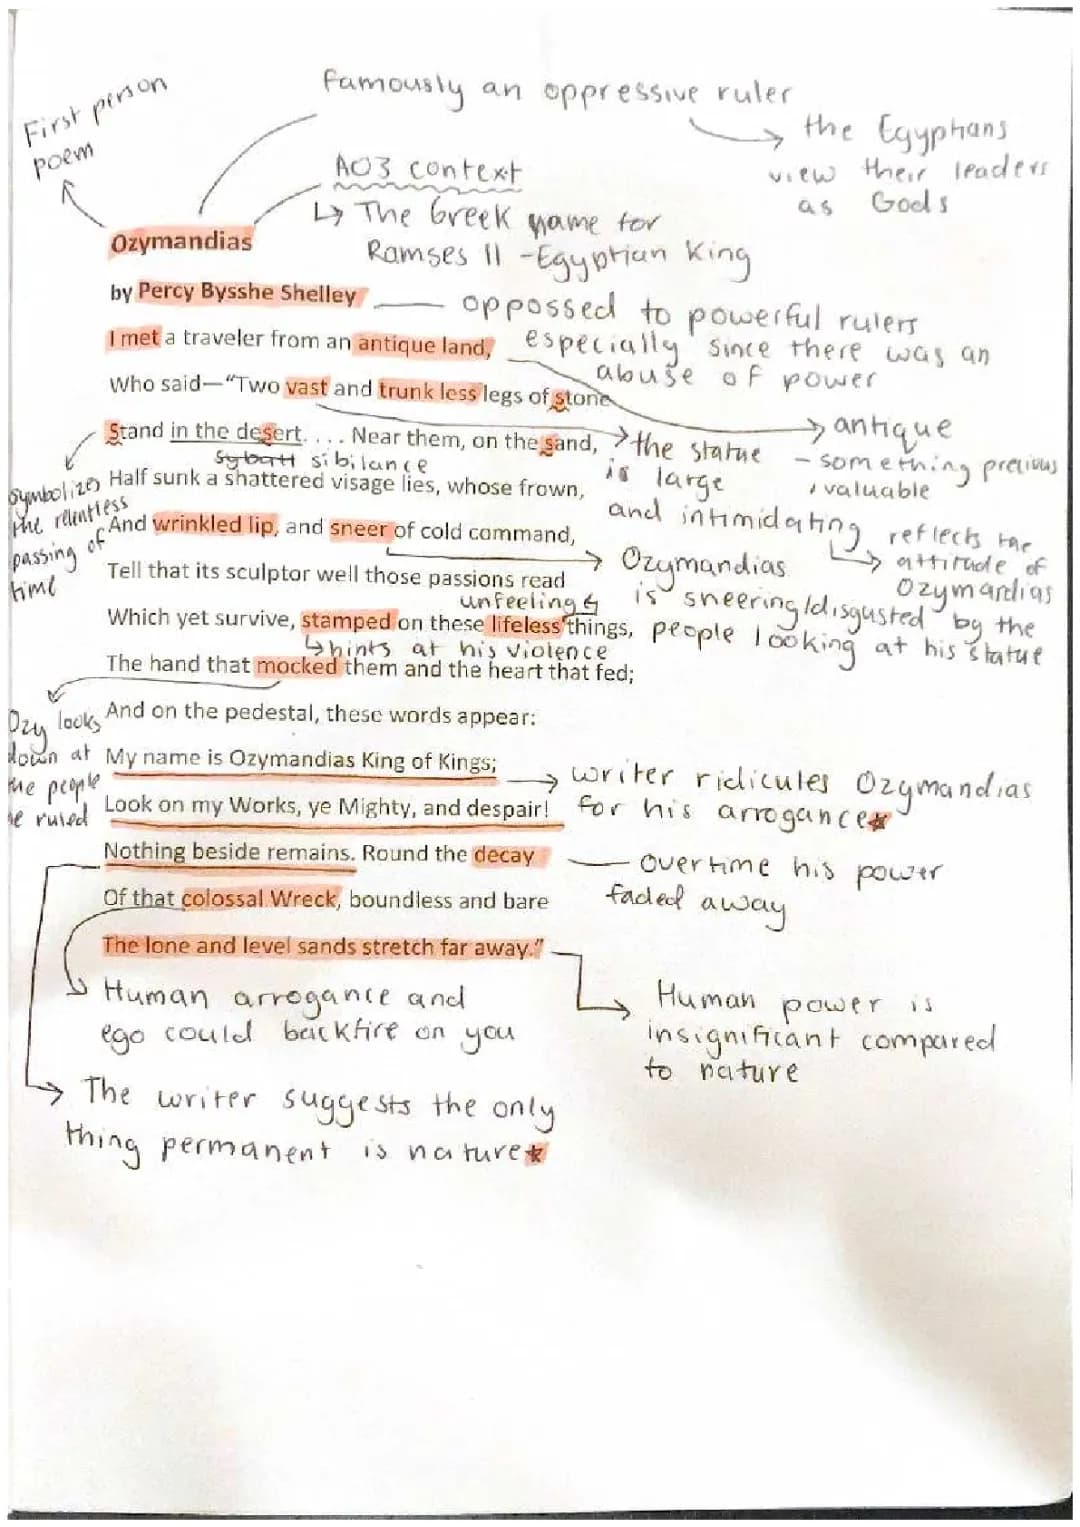 First person
poem
Famously an oppressive ruler
the Egyptians
view their leaders
as Gods
AO3 context
↳ The Greek name for
Ramses II - Egyptian King
Ozymandias
by Percy Bysshe Shelley
oppossed to powerful rulers
especially since there was an
abuse of power
I met a traveler from an antique land,
Who said—“Two vast and trunk less legs of stone
antique
- something precious
, valuable
Stand in the desert. . . . Near them, on the sand,
sibilance
the statue
is large
and intimidating
reflects the
attitude of
Ozymandias
symbolizes
the relentless
passing of
time
Half sunk a shattered visage lies, whose frown,
And wrinkled lip, and sneer of cold command,
Ozymandias
is sneering/disgusted by the
people looking at his statue
Tell that its sculptor well those passions read
unfeeling
Which yet survive, stamped on these lifeless things,
hints at his violence
The hand that mocked them and the heart that fed;
Ozy looks
down at
the people
he ruled
And on the pedestal, these words appear:
My name is Ozymandias King of Kings;
Look on my Works, ye Mighty, and despair!
writer ridicules Ozymandias
for his arrogance★
Nothing beside remains. Round the decay
overtime his power
faded away
Of that colossal Wreck, boundless and bare
The lone and level sands stretch far away.”
Human arrogance and
ego could backfire on you
Human power is
insignificant compared
to nature
The writer suggests the only
thing permanent is nature★